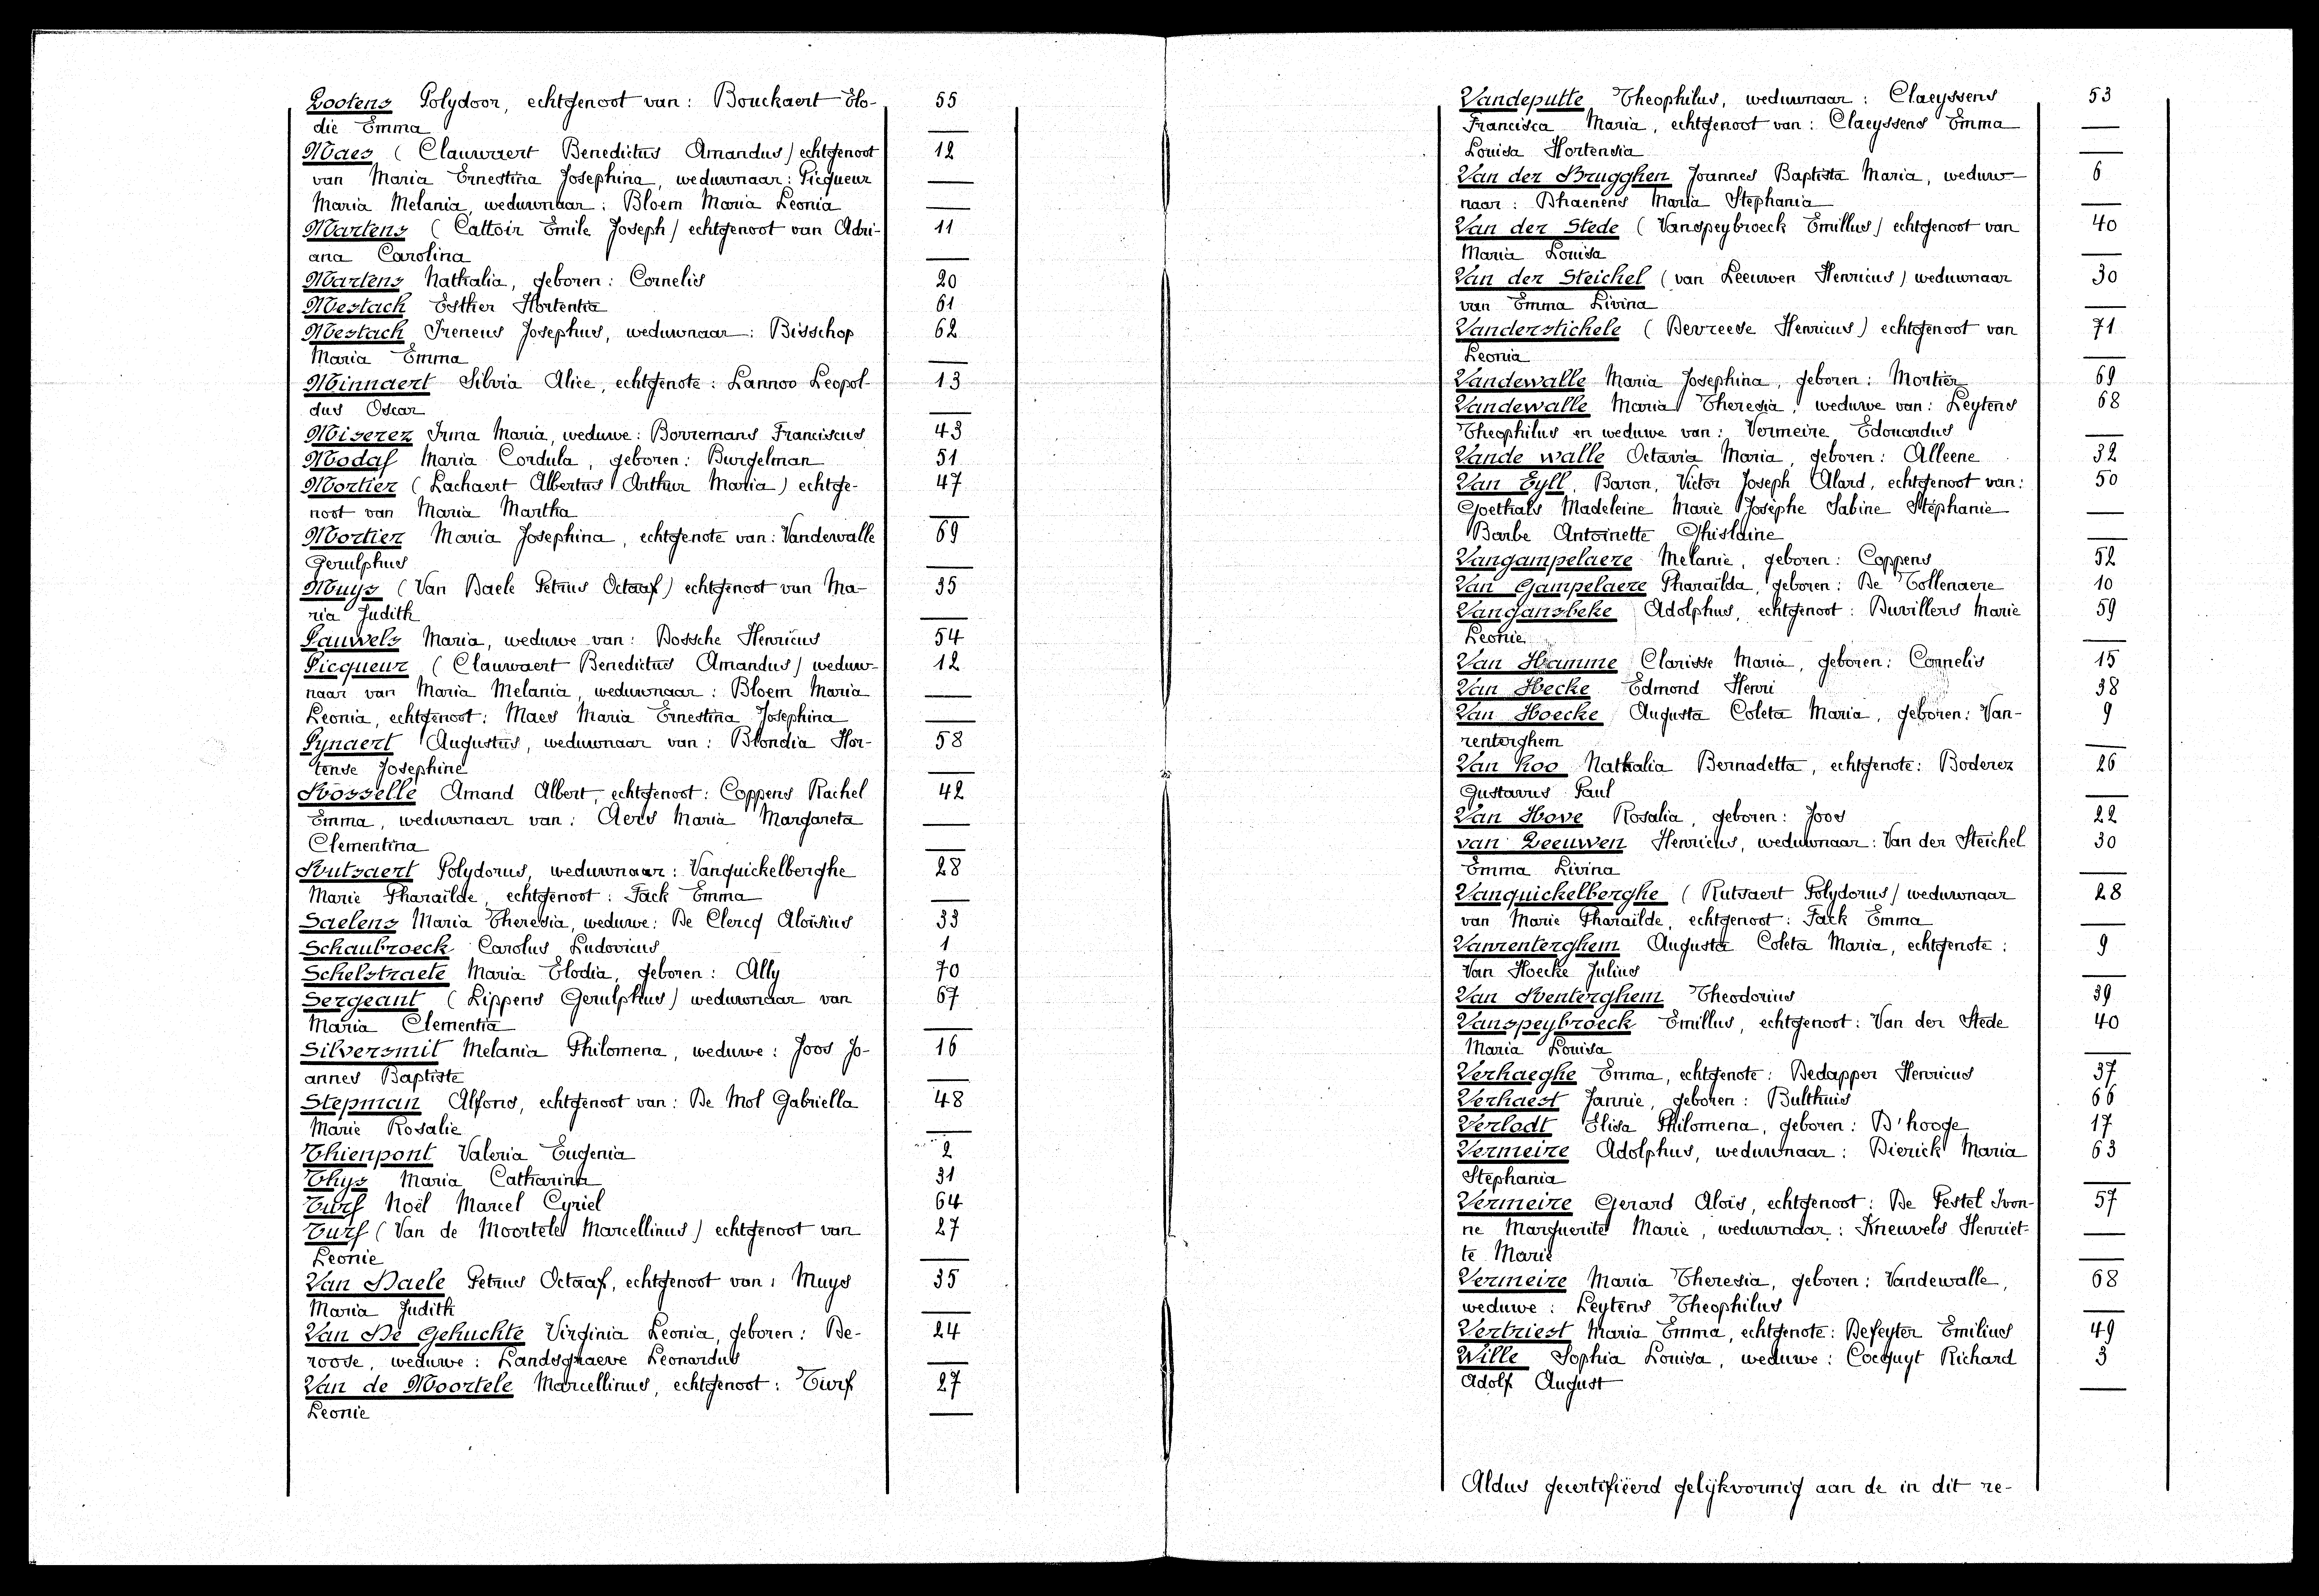 Lootens Polydoor, echtgenoot van: Bouckaert Elo- 55
die Emma —
Maes (Clauwaert Benedictus Amandus) echtgenoot 12
van Maria Ernestina Josephina, weduwnaar: Picqueur —
Maria Melania, weduwnaar: Bloem Maria Leonia —
Martens (Cattoir Emile Joseph) echtgenoot van Adri- 11
ana Carolina —
Martens Nathalia, geboren: Cornelis 20
Mestach Esther Hortentia 61
Mestach Ireneus Josephus, weduwnaar: Bisschop 62
Maria Emma —
Minnaert Silvia Alice, echtgenote: Lannoo Leopol- 13
dus Oscar —
Miserez Irma Maria, weduwe: Borremans Franciscus 43
Modaf Maria Cordula, geboren: Burgelman 51
Mortier (Lachaert Albertus Arthur Maria) echtge- 47
noot van Maria Martha —
Mortier Maria Josephina, echtgenote van: Vandewalle 69
Gerulphus —
Muys (Van Daele Petrus Octaaf) echtgenoot van Ma- 35
ria Judith —
Pauwels Maria, weduwe van: Bossche Henricus 54
Picqueur (Clauwaert Benedictus Amandus) weduw- 12
naar van Maria Melania, weduwnaar: Bloem Maria —
Leonia, echtgenoot: Maes Maria Ernestina Josephina —
Pynaert Augustus, weduwnaar van: Blondia Hor- 58
tense Josephine —
Rosselle Amand Albert, echtgenoot: Coppens Rachel 42
Emma, weduwnaar van: Aers Maria Margareta —
Clementina —
Rutsaert Polydorus, weduwnaar: Vanquickelberghe 28
Marie Pharaïlde, echtgenoot: Tack Emma —
Saelens Maria Theresia, weduwe: De Clercq Aloïsius 33
Schaubroeck Carolus Ludovicus 1
Schelstraete Maria Elodia, geboren: Ally 70
Sergeant (Lippens Gerulphus) weduwnaar van 67
Maria Clementia —
Silversmit Melania Philomena, weduwe: Joos Jo- 16
annes Baptiste —
Stepman Alfons, echtgenoot van: De Mol Gabriella 48
Marie Rosalie —
Thienpont Valeria Eugenia 2
Thys Maria Catharina 31
Turf Noël Marcel Cyriel 64
Turf (Van de Moortele Marcellinus) echtgenoot van 27
Leonie —
Van Daele Petrus Octaaf, echtgenoot van: Muys 35
Maria Judith —
Van De Gehuchte Virginia Leonia, geboren: De- 24
roose, weduwe: Landsgraeve Leonardus —
Van de Moortele Marcellinus, echtgenoot: Turf 27
Leonie —
Vandeputte Theophilus, weduwnaar: Claeyssens 53
Francisca Maria, echtgenoot van: Claeyssens Emma —
Louisa Hortensia —
Van der Brugghen Joannes Baptista Maria, weduw- 6
naar: Dhaenens Maria Stephania —
Van der Stede (Vanspeybroeck Emillus) echtgenoot van 40
Maria Louisa —
Van der Steichel (van Leeuwen Henricus) weduwnaar 30
van Emma Livina —
Vanderstichele (Devreese Henricus) echtgenoot van 71
Leonia —
Vandewalle Maria Josephina, geboren: Mortier 69
Vandewalle Maria Theresia, weduwe van: Leytens 68
Theophilus en weduwe van: Vermeire Edouardus —
Vande walle Octavia Maria, geboren: Alleene 32
Van Eyll, Baron, Victor Joseph Alard, echtgenoot van: 50
Goethals Madeleine Marie Josèphe Sabine Stéphanie —
Barbe Antoinette Ghislaine —
Vangampelaere Melanie, geboren: Coppens 52
Van Gampelaere Pharaïlda, geboren: De Tollenaere 10
Vangansbeke Adolphus, echtgenoot: Duvillers Marie 59
Leonie —
Van Hamme Clarisse Maria, geboren: Cornelis 15
Van Hecke Edmond Henri 38
Van Hoecke Augusta Coleta Maria, geboren: Van- 9
renterghem —
Van Hoo Nathalia Bernadetta, echtgenote: Boderez 26
Gustavus Paul —
Van Hove Rosalia, geboren: Joos 22
van Leeuwen Henricus, weduwnaar: Van der Steichel 30
Emma Livina —
Vanquickelberghe (Rutsaert Polydorus) weduwnaar 28
van Marie Pharaïlde, echtgenoot: Tack Emma —
Vanrenterghem Augusta Coleta Maria, echtgenote: 9
Van Hoecke Julius —
Van Renterghem Theodorius 39
Vanspeybroeck Emillus, echtgenoot: Van der Stede 40
Maria Louisa —
Verhaeghe Emma, echtgenote: Dedapper Henricus 37
Verhaest Jannie, geboren: Bulthuis 66
Verlodt Elisa Philomena, geboren: D'hooge 17
Vermeire Adolphus, weduwnaar: Dierick Maria 63
Stephania —
Vermeire Gerard Aloïs, echtgenoot: De Pestel Ivon- 57
ne Marguerite Marie, weduwnaar: Kneuvels Henriet- —
te Marie —
Vermeire Maria Theresia, geboren: Vandewalle, 68
weduwe: Leytens Theophilus —
Vertriest Maria Emma, echtgenote: Defeyter Emilius 49
Wille Sophia Louisa, weduwe: Cocquyt Richard 3
Adolf August —
Aldus gecertifiëerd gelijkvormig aan de in dit re-